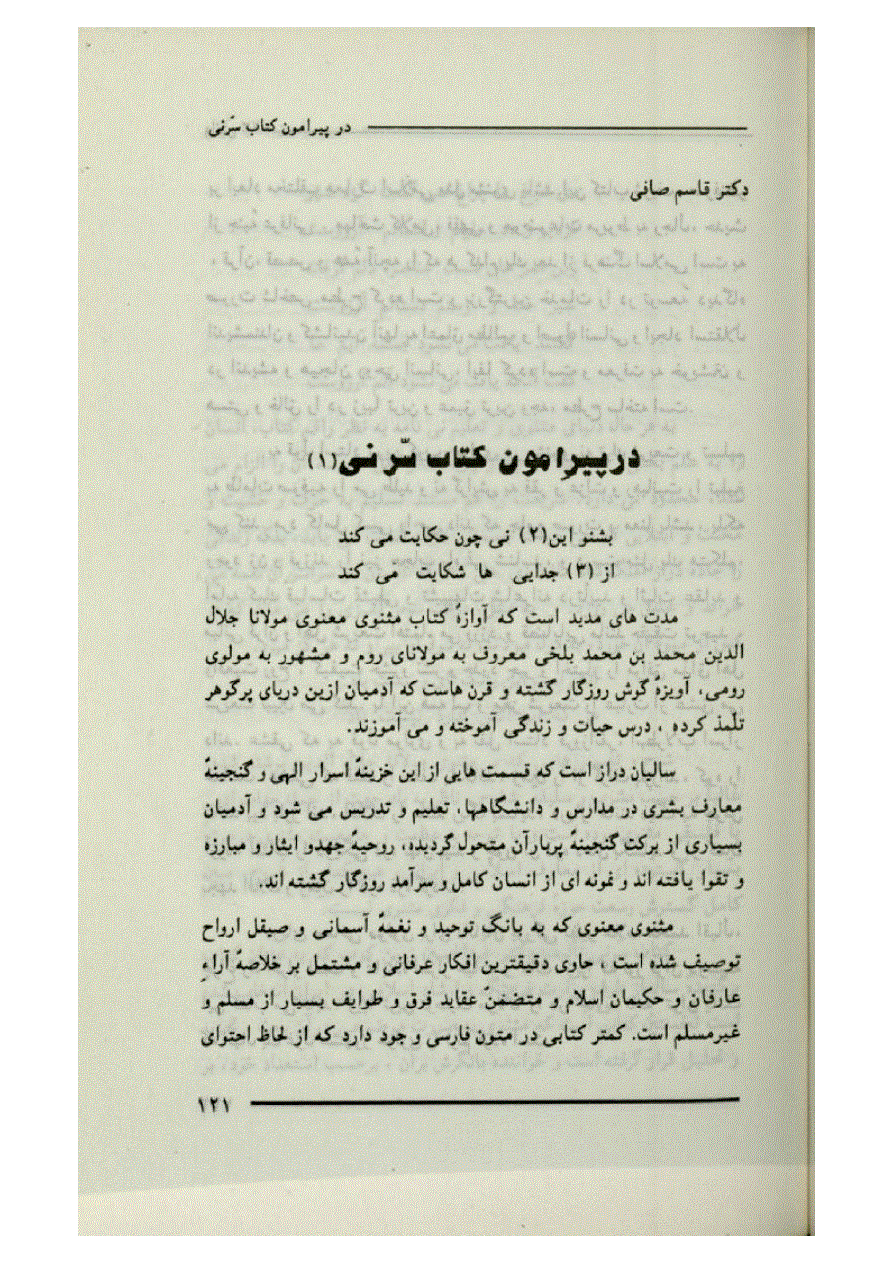 در پیرامون کتاب سّرنی
دکتر قاسم صافی
در پیرامون کتاب سّر نی (۱)
بشنو این(۲) نی چون حکایت می کند
از (۳) جدایی ها شکایت می کند
مدت های مدید است که آوازهٔ کتاب مثنوی معنوی مولانا جلال
الدین محمد بن محمد بلخی معروف به مولانای روم و مشهور به مولوی
رومی، آویزهٔ گوش روزگار گشته و قرن هاست که آدمیان ازین دریای پرگوهر
تلّمذ کرده ، درس حیات و زندگی آموخته و می آموزند.
سالیان دراز است که قسمت هایی از این خزینهٔ اسرار الهی و گنجینهٔ
معارف بشری در مدارس و دانشگاهها، تعلیم و تدریس می شود و آدمیان
بسیاری از برکت گنجینهٔ پربارآن متحول گردیده، روحیهٔ جهدو ایثار و مبارزه
و تقوا یافته اند و نمونه ای از انسان کامل و سرآمد روزگار گشته اند.
مثنوی معنوی که به بانگ توحید و نغمهٔ آسمانی و صیقل ارواح
توصیف شده است ، حاری دقیقترین افکار عرفانی و مشتمل بر خلاصهٔ آراءِ
عارفان و حکیمان اسلام و متضمنّ عقاید فرق و طوایف بسیار از مسلم و
غیرمسلم است. کمتر کتابی در متون فارسی و جود دارد که از لحاظ احتوای
۱۲۱